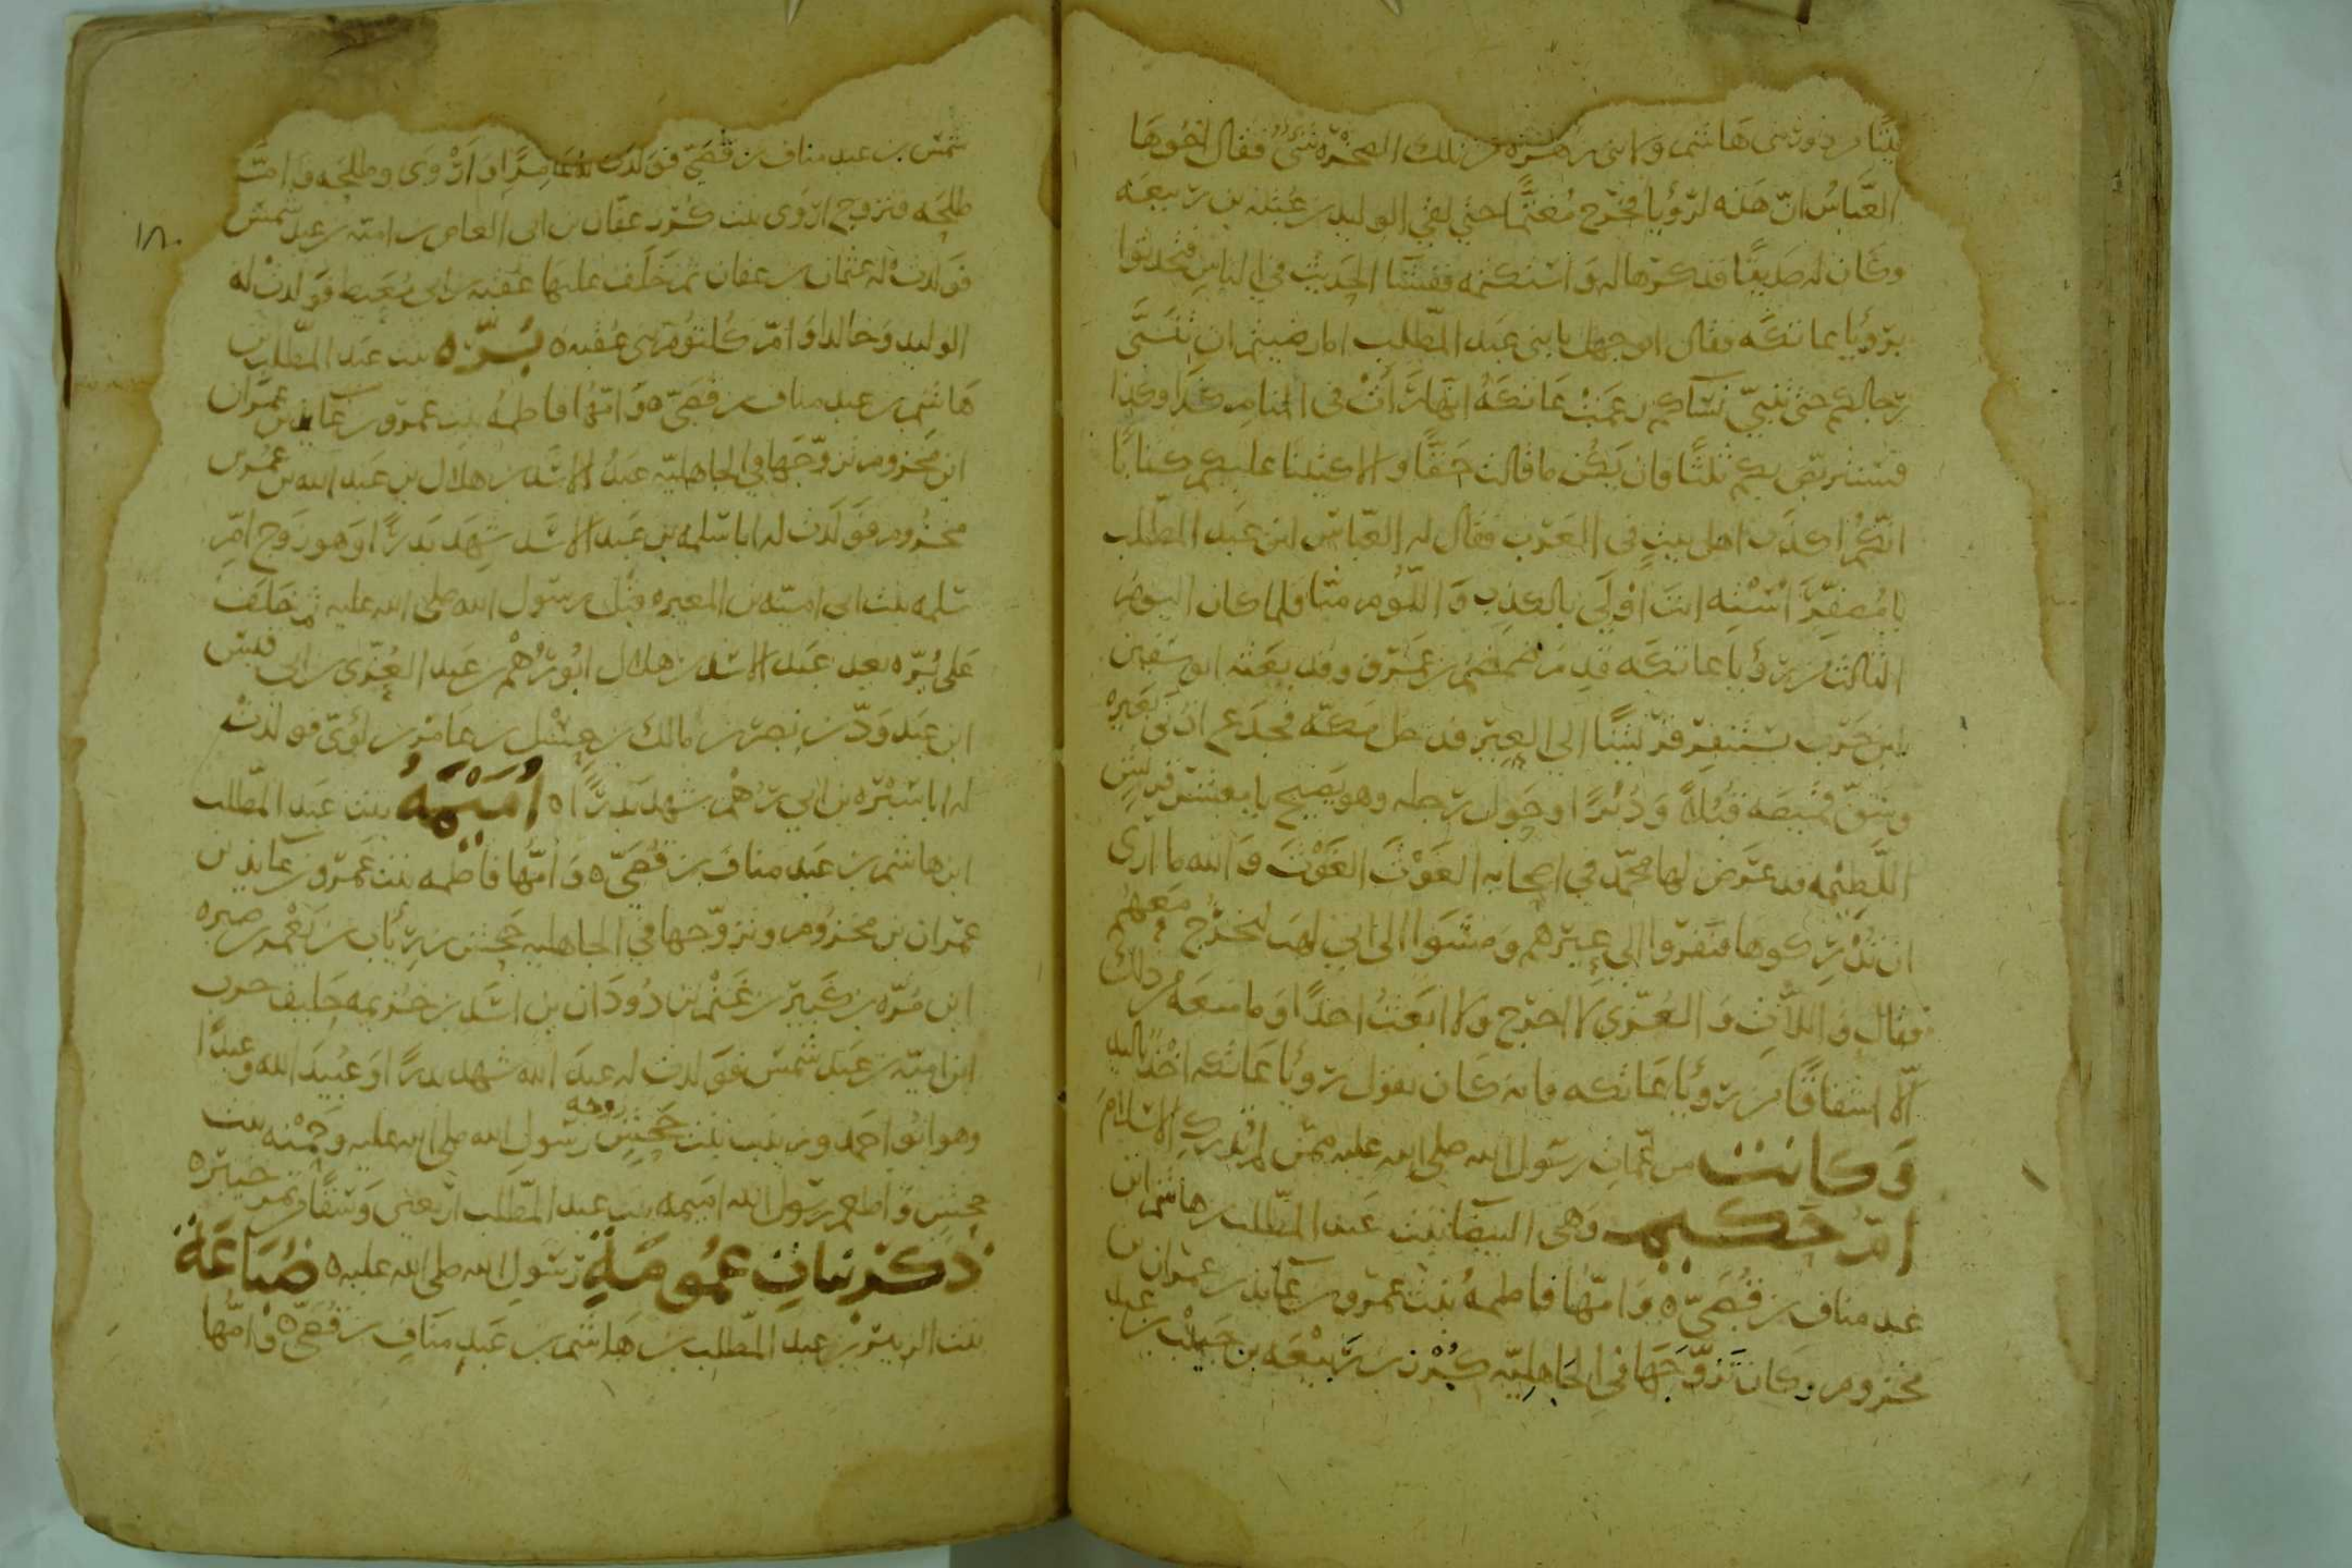 بيتًا من دور بنى هاشم ولا بنى زهره من تلك الصخرة شئ فقال اخوها
العباس ان هذه لرؤيا فخرج مغتمًا حتى لقى الوليد بن عتبه بن ربيعه
وكان له صديقًا فذكرها له واستكتمه ففشا الحديث في الناس فتحدثوا
برؤيا عاتكه فقال ابو جهل يا بنى عبد المطلب اما رضيتم ان تنبّى
رجالكم حتى تنبّى نساكم زعمت عاتكة انها رأت فى المنام كذا وكذا
فسنتربص بكم ثلثًا فان يكن ما قالت حقًا والا كتبنا عليكم كتابًا
انكم اكذب اهل بيت فى العرب فقال له العباس ابن عبد المطلب
يا مصفّر استه انت اولى بالكذب واللؤم منّا فلما كان اليوم
الثالث من رؤيا عاتكه قدم ضمضم بن عمرو وقد بعثه ابو سفين
ابن حرب يستنفر قريشًا الى العير فدخل مكّه فجدع اذنى بعيره
وشقّ قميصه قبلاً ودبرًا وحوّل رحله وهو يصيح يا معشر قريش
اللّطيمه قد عرض لها محمّد في اصحابه الغوث الغوث والله ما ارى
ان تدركوها فنفروا الى عيرهم ومشوا الى ابي لهب ليخرج معهم
فقال واللات والعزّى لا اخرج ولا ابعث احدًا وما منعه من ذلك
الّا اشفاقًا من رؤيا عاتكه فانه كان يقول رؤيا عاتكه اخذ باليد
وكانت من عمّات رسول الله صلى الله عليه ممّن لم يدرك الاسلام
امّ حكيم وهى البيضا بنت عبد المطّلب بن هاشم ابن
عبد مناف بن قصىّ ه وامّها فاطمة بنت عمرو بن عايذ بن عمران بن
مخزوم وكان تزوّجها في الجاهليّه كريز بن ربيعه بن حبيب بن عبد
١٨٠
شمس بن عبد مناف بن قصىّ فولدت له عامرًا واروى وطلحه وامّ
طلحه فتزوج اروى بنت كريز عفّان بن ابى العاص بن اميّه بن عبد شمس
فولدت له عثمان بن عفان ثمّ خلف عليها عقبه بن ابى معيط فولدت له
الوليد وخالدا وامّ كلثوم بنى عقبه ه برّه بنت عبد المطّلب بن
هاشم بن عبد مناف بن قصىّ ه وامّها فاطمة بنت عمرو بن عايذ بن عمران
ابن مخزوم تزوّجها في الجاهليّه عبد الاسد بن هلال بن عبد الله بن عمر بن
مخزوم فولدت له ابا سلمه بن عبد الاسد شهد بدرًا وهو زوج امّ
سلمه بنت ابى اميّه بن المغيره قبل رسول الله صلى الله عليه ثم خلف
على برّه بعد عبد الاسد بن هلال ابو رهم بن عبد العزّى بن ابى قيس
ابن عبد ودّ بن نصر بن مالك بن حسل بن عامر بن لؤىّ فولدت
له ابا سبره بن ابى رهم شهد بدرًا ه اميمة بنت عبد المطّلب
ابن هاشم بن عبد مناف بن قصىّ ه وامّها فاطمه بنت عمرو بن عايذ بن
عمران بن مخزوم وتزوّجها في الجاهليه جحش بن رياب بن يعمر بن صبره
ابن مرّه بن كبير بن غنم بن دودان بن اسد بن خزيمه حليف حرب
ابن اميّه بن عبد شمس فولدت له عبد الله شهد بدرًا وعبيد الله وعبدًا
وهو ابو احمد وزينب بنت جحش زوجه رسول الله صلى الله عليه وحمنه بنت
جحش واطعم رسول الله اميمه بنت عبد المطّلب اربعين وسقًا من تمر خيبر ه
ذكر بنات عمومة رسول الله صلى الله عليه ه ضباعة
بنت الزبير بن عبد المطّلب بن هاشم بن عبد مناف بن قصىّ ه وامّها